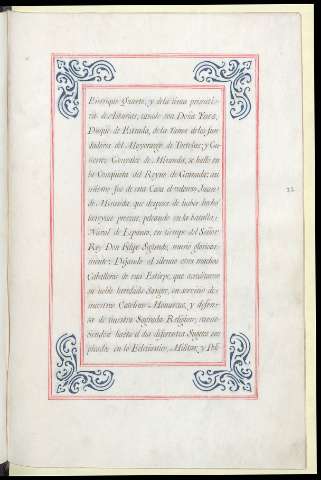 Enrrique Quarto; y de la linea primoxeni-
ta de Asturias, casado con Doña Ynés,
Duque de Estrada, de la Torre de los Jun
fundadores del Mayorazgo, de Tortoles; y Gu-
tierre Gonzalez de Miranda, se hallo en
la Conquista del Reyno de Granada; asi
mismo fue de esta Casa el valeroso Juan
de Miranda que despues de haber hecho
heroycas proezas, peleando en la batalla,
Naval de Lepanto, en tiempo del Señor
Rey Don Felipe Segundo, murio gloriosa-
mente: Dejando al silencio otros muchos
Caballeros de esta Estirpe, que
su noble heredada Sangre, en servicio de
nuestros Catolicos Monarcas, y defen-
sa de nuestra Sagrada Religion;
hasta el dia diferentes Sugetos em
pleados en lo Eclesiastico, Militar, y Poli-
22